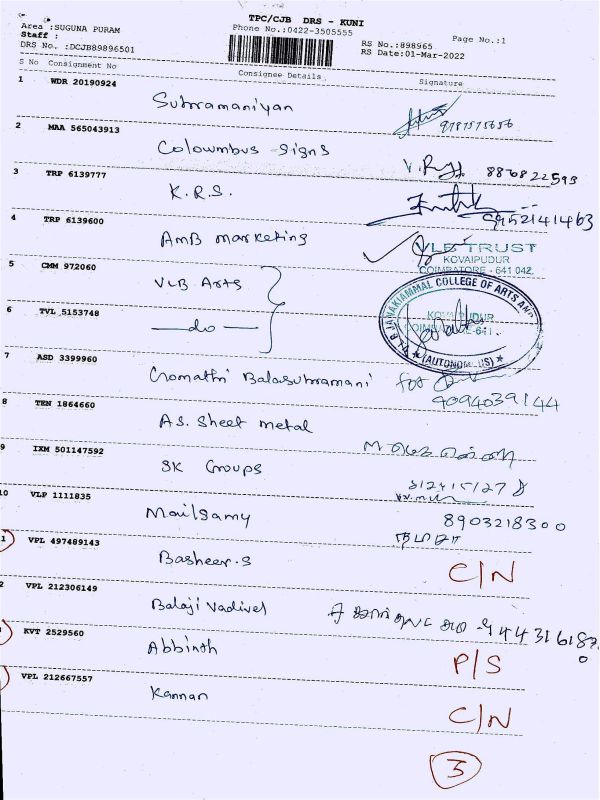 TPC/CJB DRS - KUNI
Area :SUGUNA PURAM
Phone No.:0422-3505555
Page No.:1
Staff :
RS No.:898965
DRS No. :DCJB89896501
RS Date:01-Mar-2022
S No Consignment No Consignee Details Signature
1 WDR 20190924
Subramaniyan
9787575656
2 MAA 565043913
Coloumbus signs
V. Raj 8870822593
3 TRP 6139777
K.R.S.
9952141463
4 TRP 6139600
AMB marketing
VLB TRUST
KOVAIPUDUR
COIMBATORE - 641 042.
5 CMM 972060
VLB Arts
JANAKIAMMAL COLLEGE OF ARTS AND
KOVAIPUDUR
COIMBATORE-641
(AUTONOMOUS)
6 TVL 5153748
do
7 ASD 3399960
Gomathi Balasubramani
for
9094039144
8 TEN 1864660
AS. Sheet metal
9 IXM 501147592
SK Groups
10 VLP 1111835
Mailsamy
8903218300
1 VPL 497489143
Basheer.S
C/N
2 VPL 212306149
Balaji Vadivel
KVT 2529560
Abbinth
P/S
VPL 212667557
Kannan
C/N
3